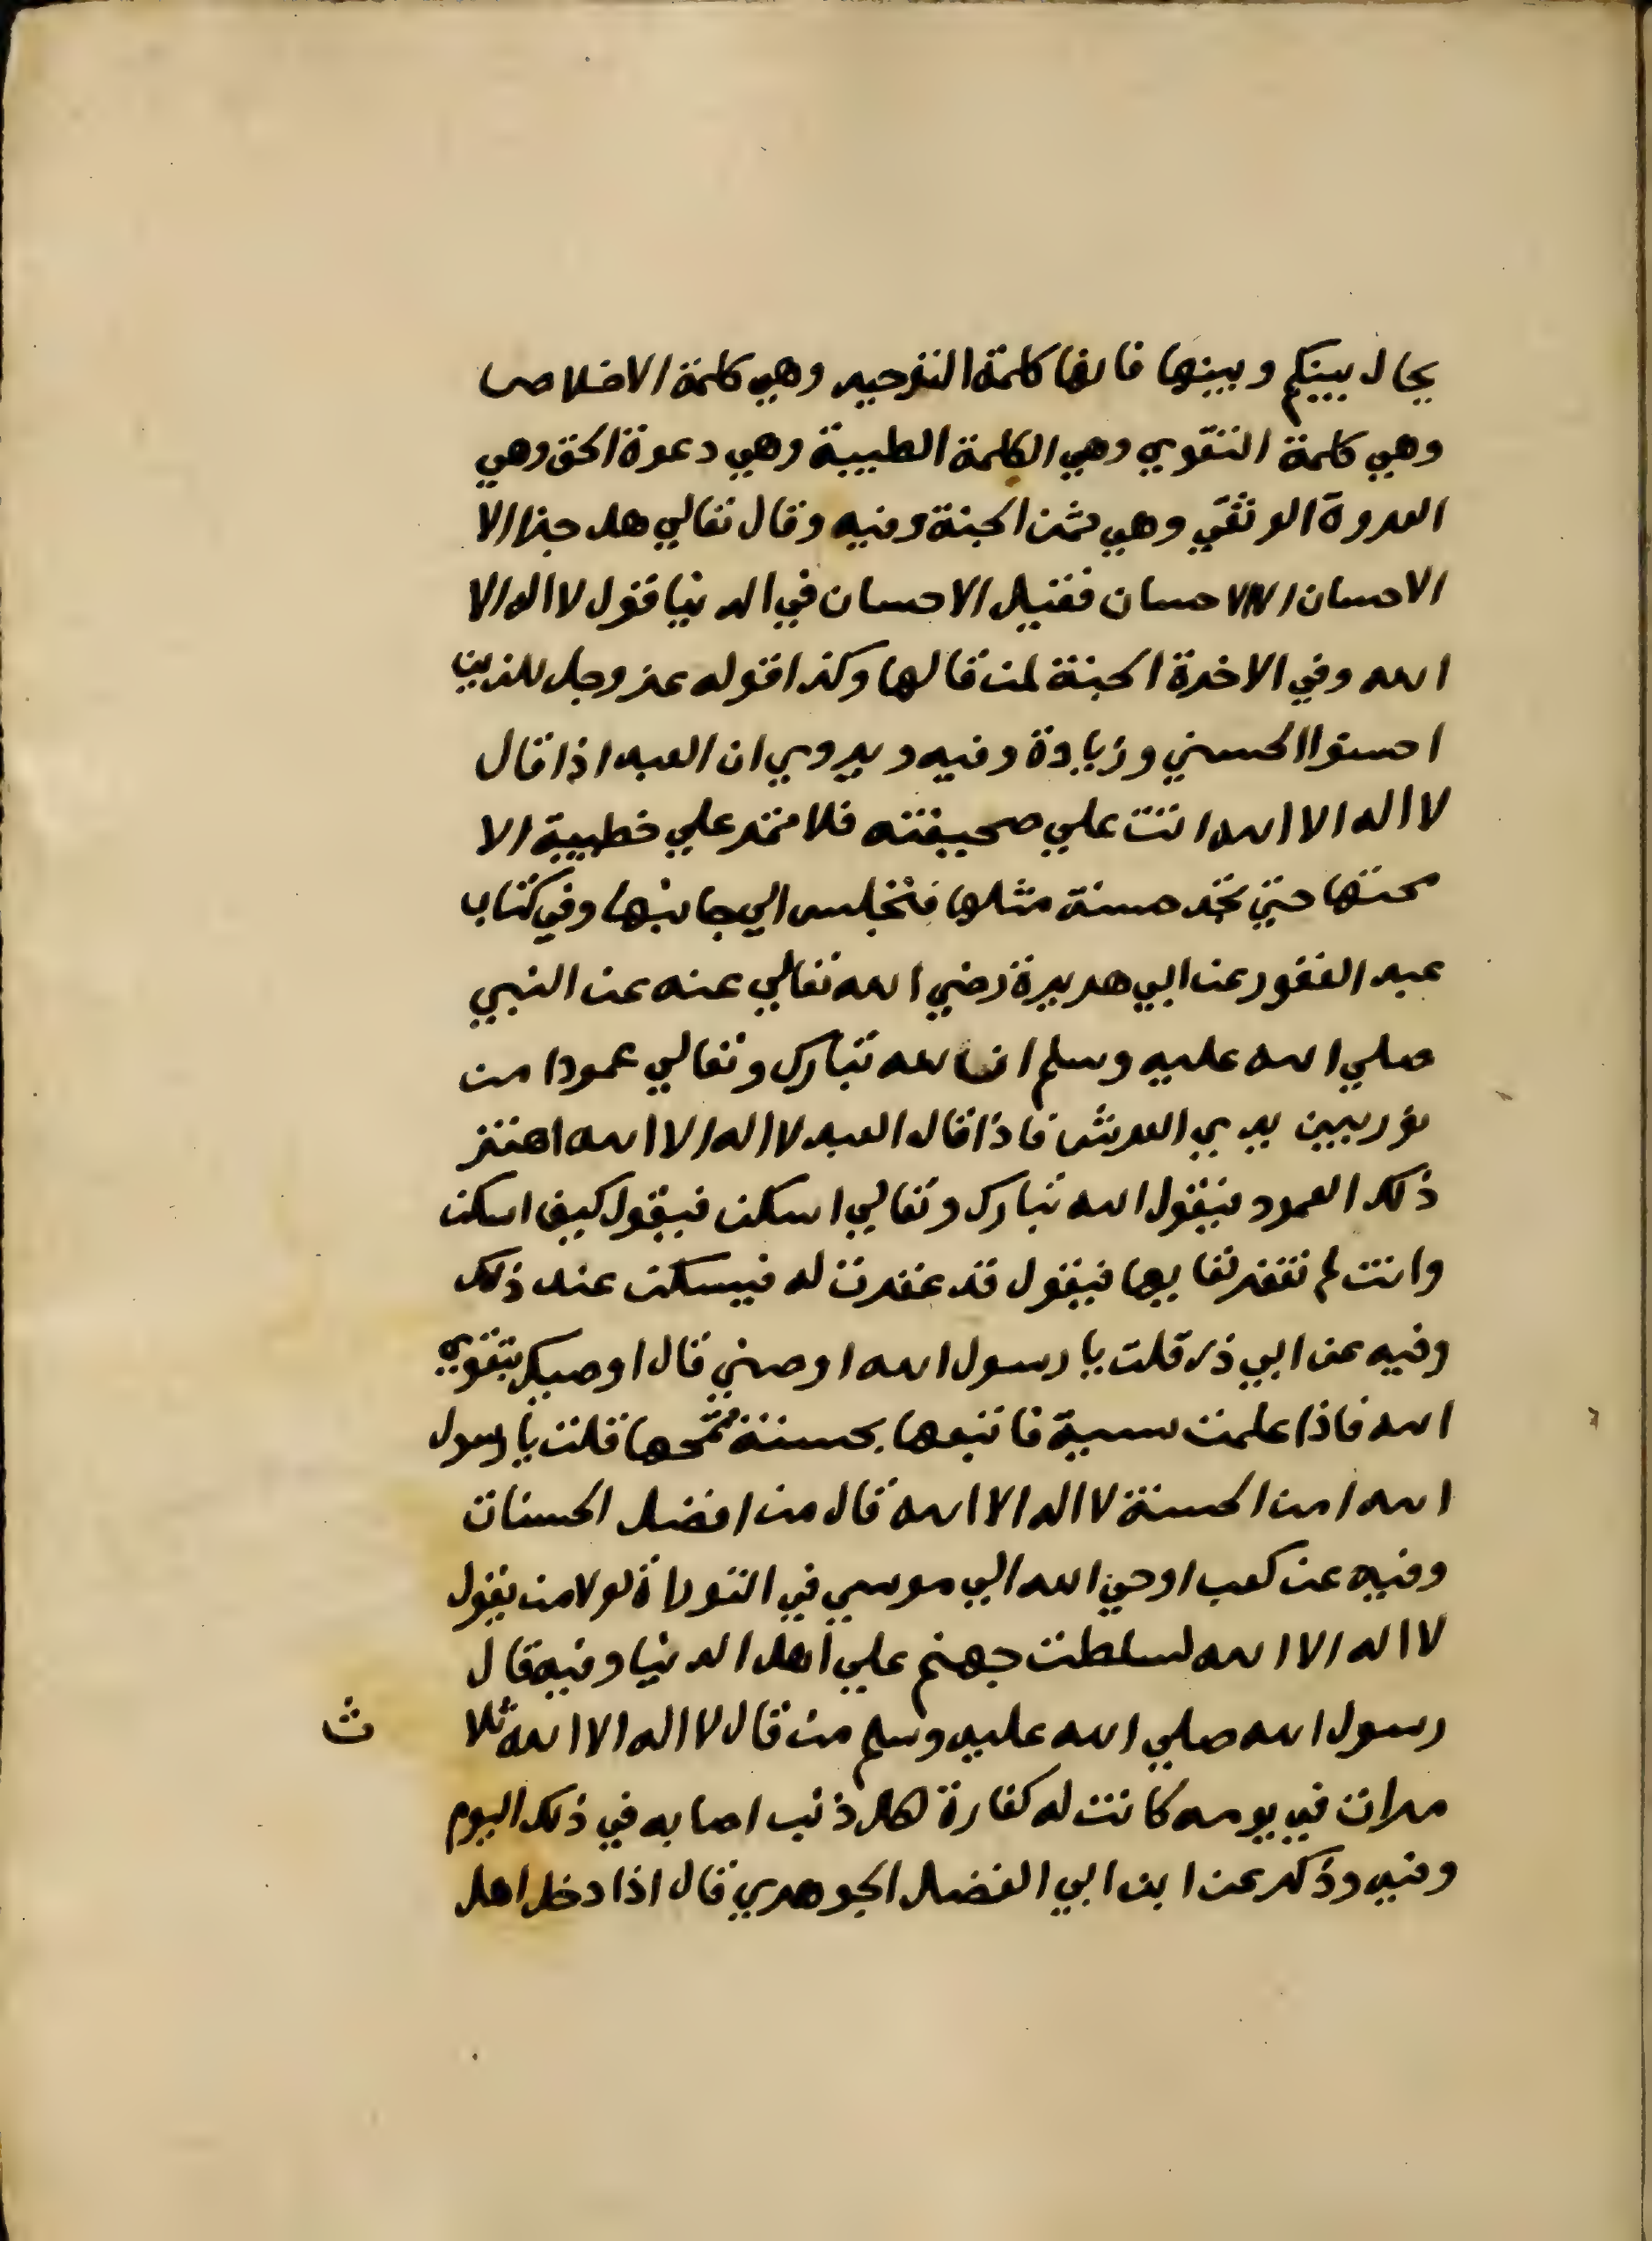 يحال بينكم وبينها فانها كلمة التوحيد وهي كلمة الاخلاص
وهي كلمة التقوي وهي الكلمة الطيبة وهي دعوة الحق وهي
العروة الوثقي وهي ثمن الجنة وفيه وقال تعالي هل جزا الا
الاحسان الا الاحسان فقيل الاحسان في الدنيا قول لا اله الا
الله وفي الاخرة الجنة لمن قالها وكذا قوله عز وجل للذين
احسنوا الحسني وزيادة وفيه ويروي ان العبد اذا قال
لا اله الا الله اتت علي صحيفته فلا تمر علي خطيية الا
محتها حتي تجد حسنة مثلها فتجلس الي جانبها وفي كتاب
عبد الغفور عن ابي هريرة رضي الله تعالي عنه عن النبي
صلي الله عليه وسلم ان لله تبارك وتعالي عمودا من
نور بين يدي العرش فاذا قال العبد لا اله الا الله اهتز
ذلك العمود فيقول الله تبارك وتعالي اسكن فيقول كيف اسكن
وانت لم تغفر لقايلها فيقول قد غفرت له فيسكن عند ذلك
وفيه عن ابي ذر قلت يا رسول الله اوصني قال اوصيك بتقوي
الله فاذا علمت سيية فاتبعها بحسنة تمحها قلت يا رسول
الله امن الحسنة لا اله الا الله قال من افضل الحسنات
وفيه عن كعب اوحي الله الي موسي في التوراة لولا من يقول
لا اله الا الله لسلطت جهنم علي اهل الدنيا وفيه قال
رسول الله صلي الله عليه وسلم من قال لا اله الا الله ثلا ث
مرات في يومه كانت له كفارة لكل ذنب اصابه في ذلك اليوم
وفيه وذكر عن ابن ابي الفضل الجوهري قال اذا دخل اهل